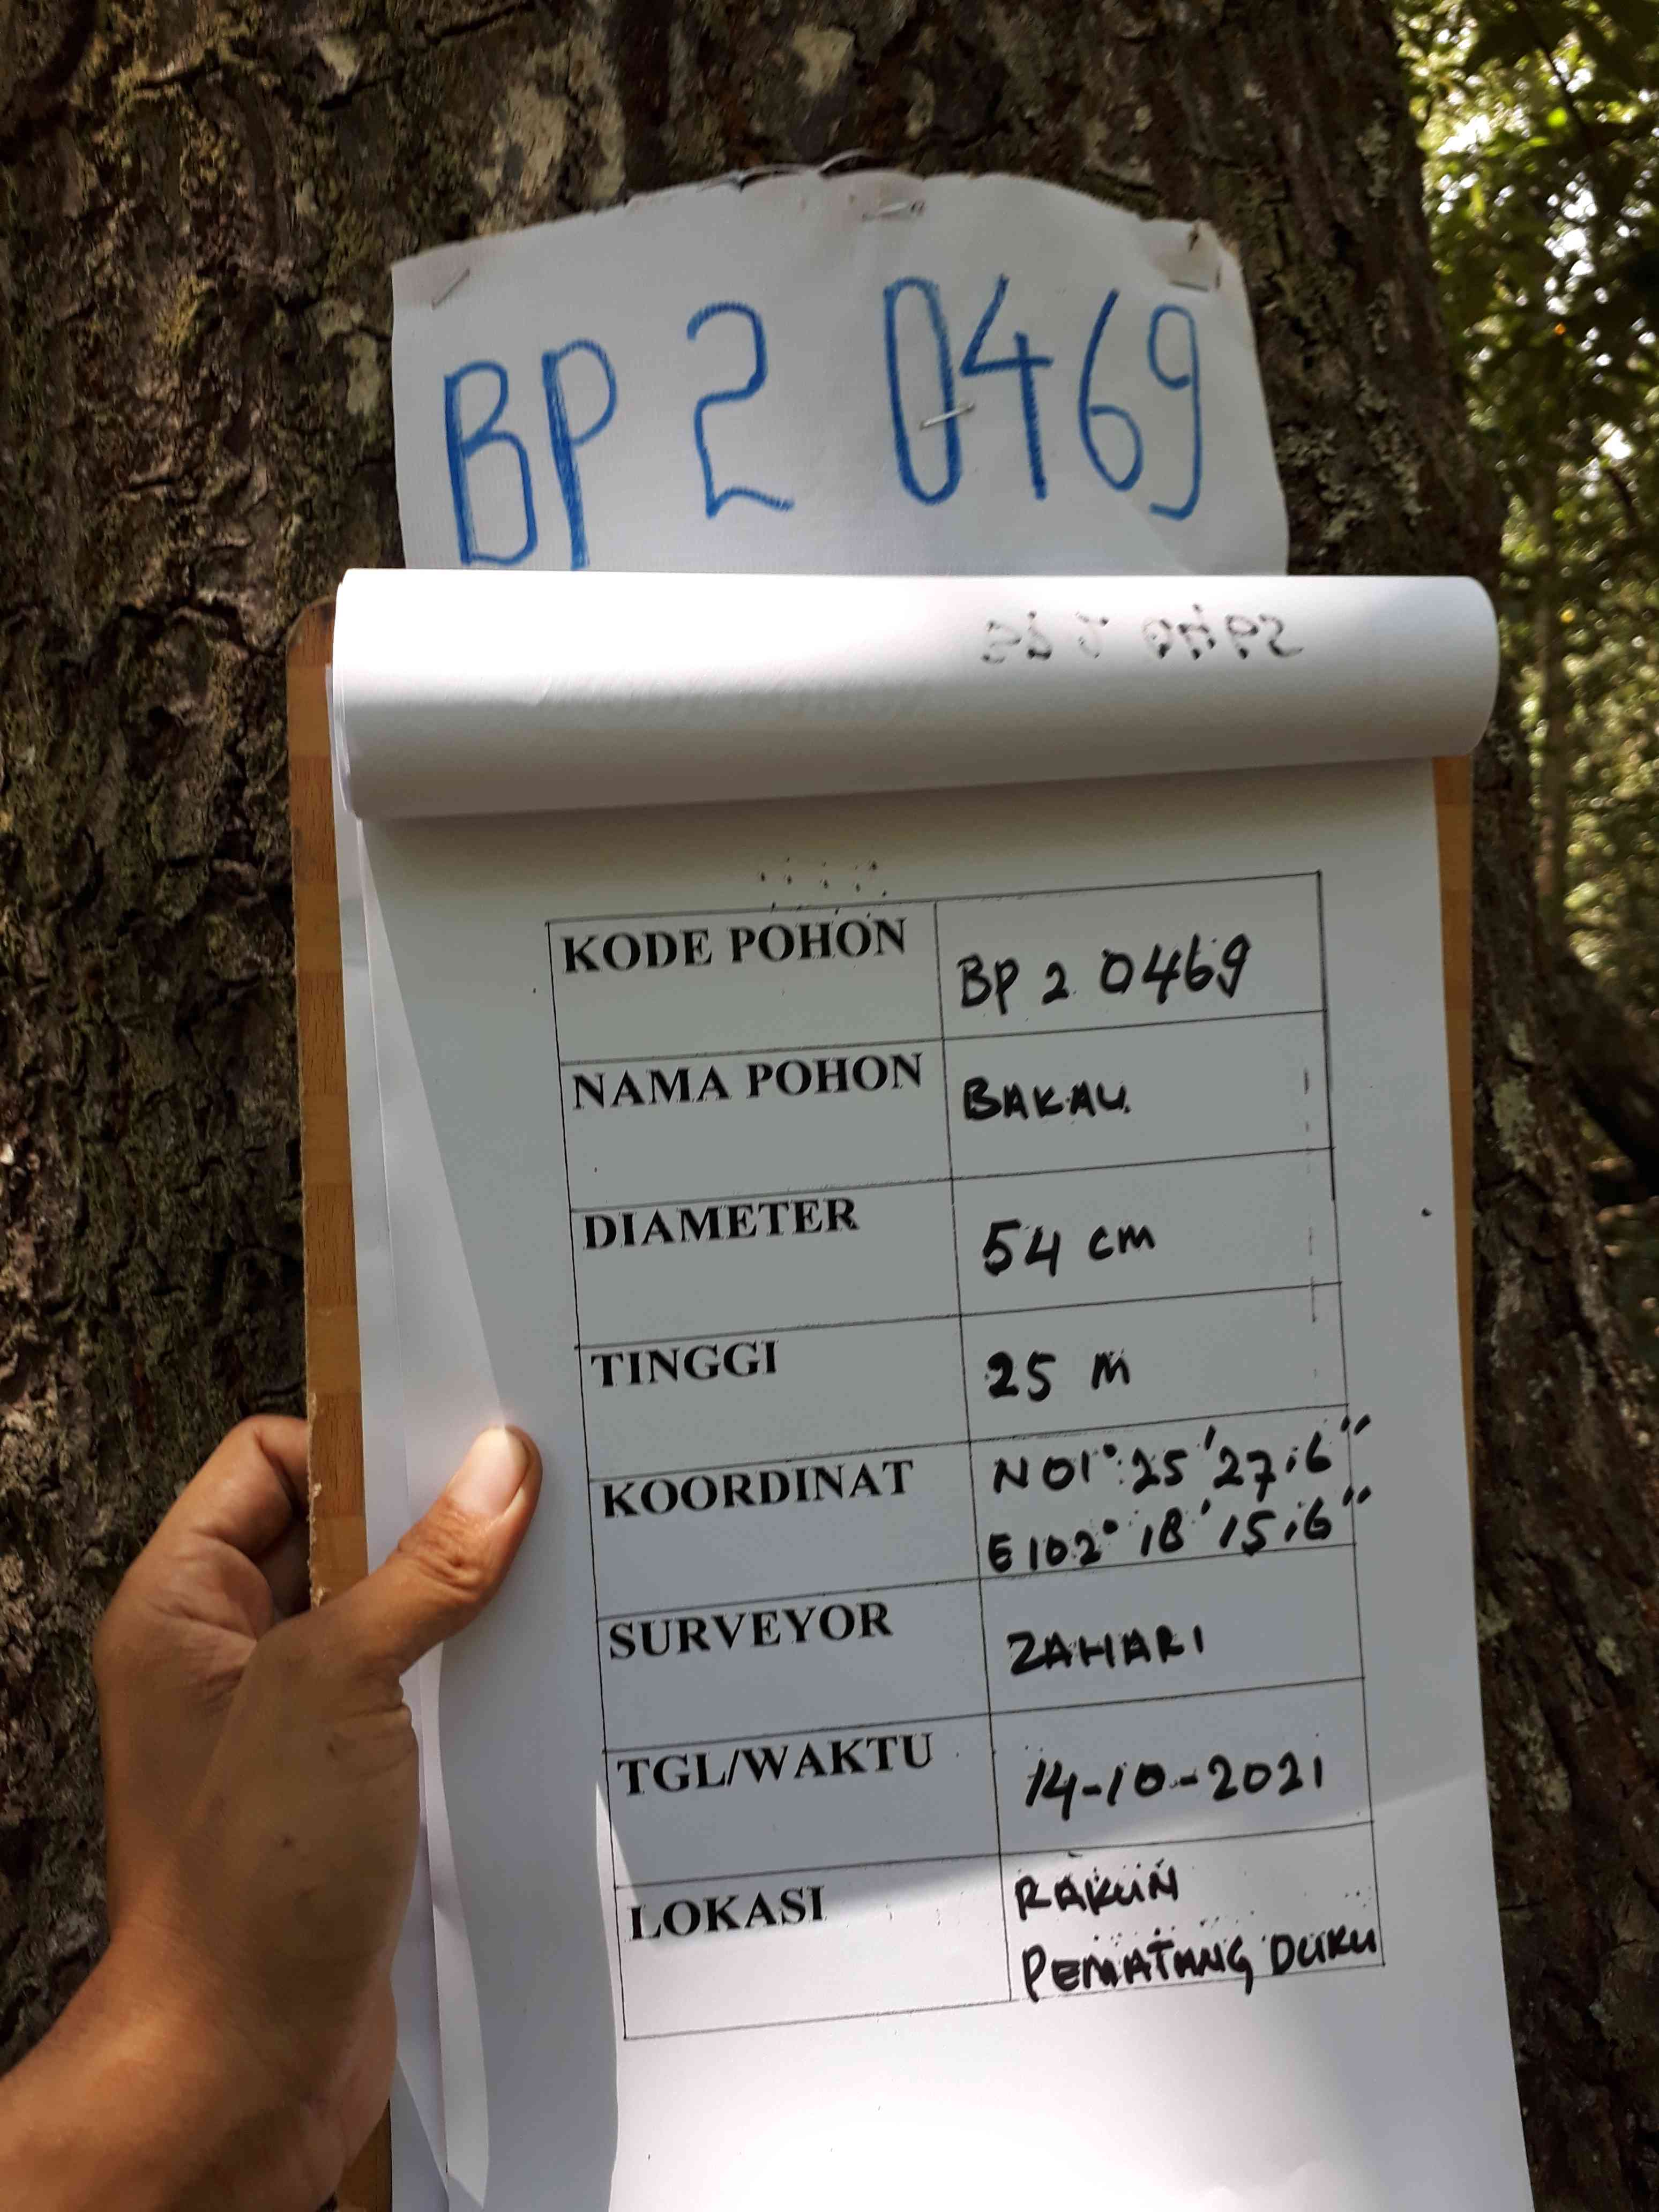 BP 2 0469
KODE POHON BP 2 0469
NAMA POHON BAKAU
DIAMETER 54 cm
TINGGI 25 M
KOORDINAT N 01° 25' 27.6"
E 102° 18' 15.6"
SURVEYOR ZAHARI
TGL/WAKTU 14-10-2021
LOKASI RAKUN
PEMATANG DUKU